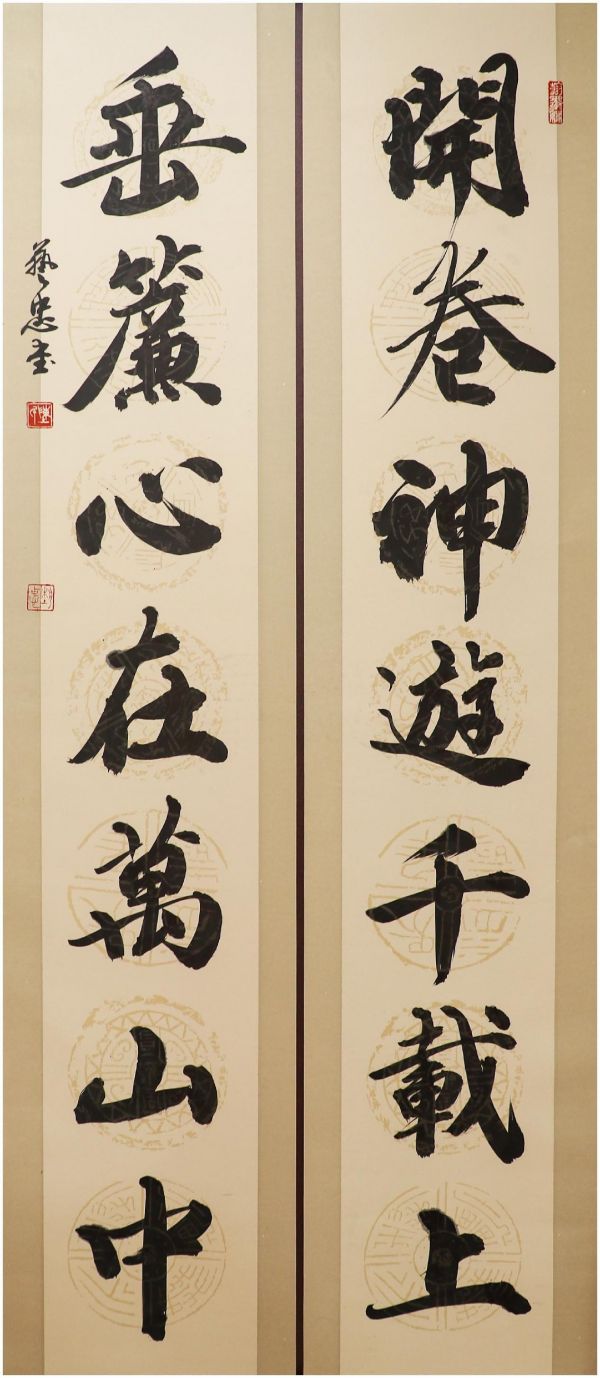 開卷神遊千載上
垂簾心在萬山中
藝忠書